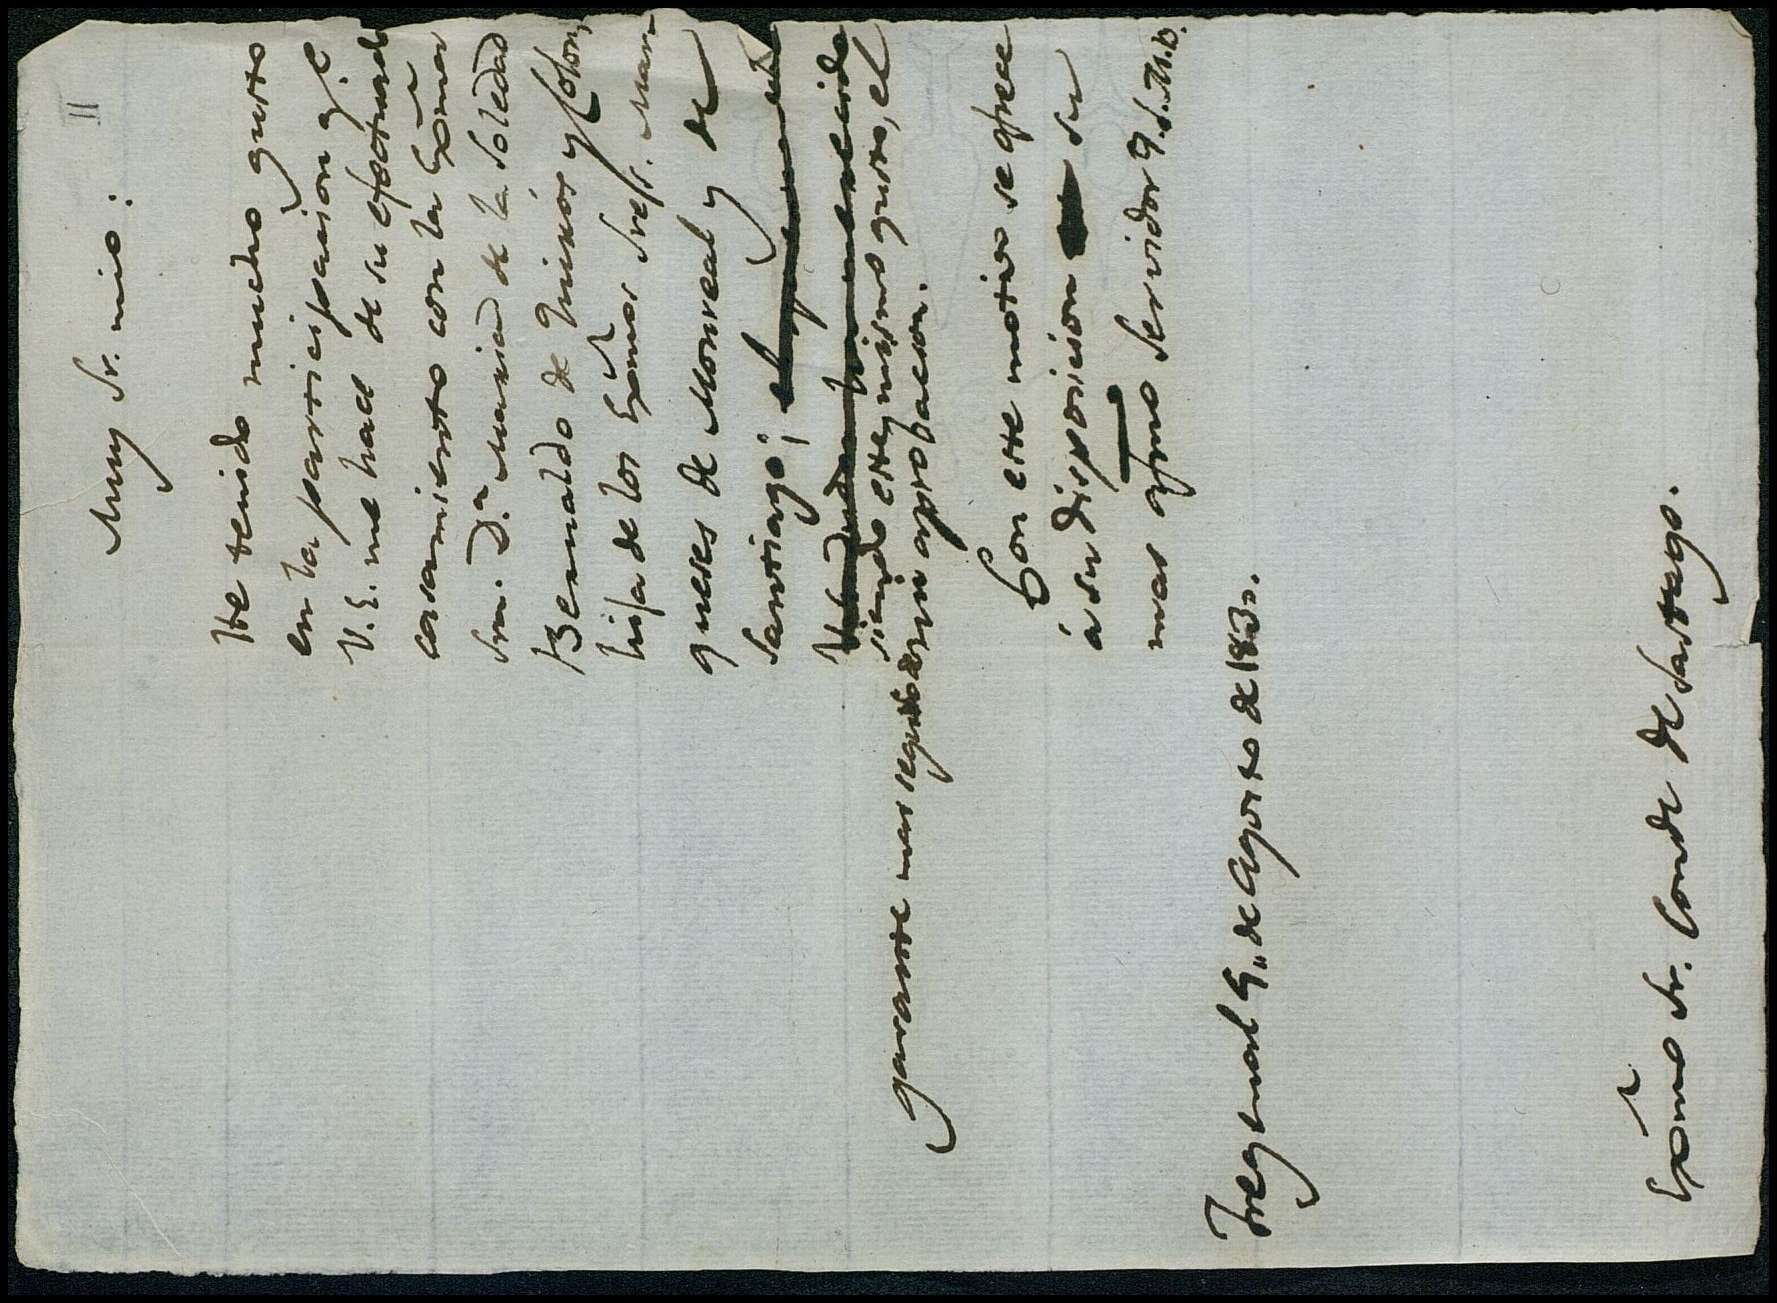 II
Muy Sr. mio:
He tenido mucho gusto
en la participacion q.e
V.E. me hace de su efectuado
casamiento con la Exma
Sra. D.a Maria de la Soledad
Bernaldo de Quirós y Colon,
hija de los Exmos Sres. Mar
queses de Monreal y de
Santiago;
siendo este mismo gusto, el
garante mas seguro de mi aprobacion.
Con este motivo se ofrece
á su disposicion su
mas afmo servidor Q.S.M.B.
Fregenal 9,, de Agosto de 1830.
Exmo Sr. Conde de Sástago.